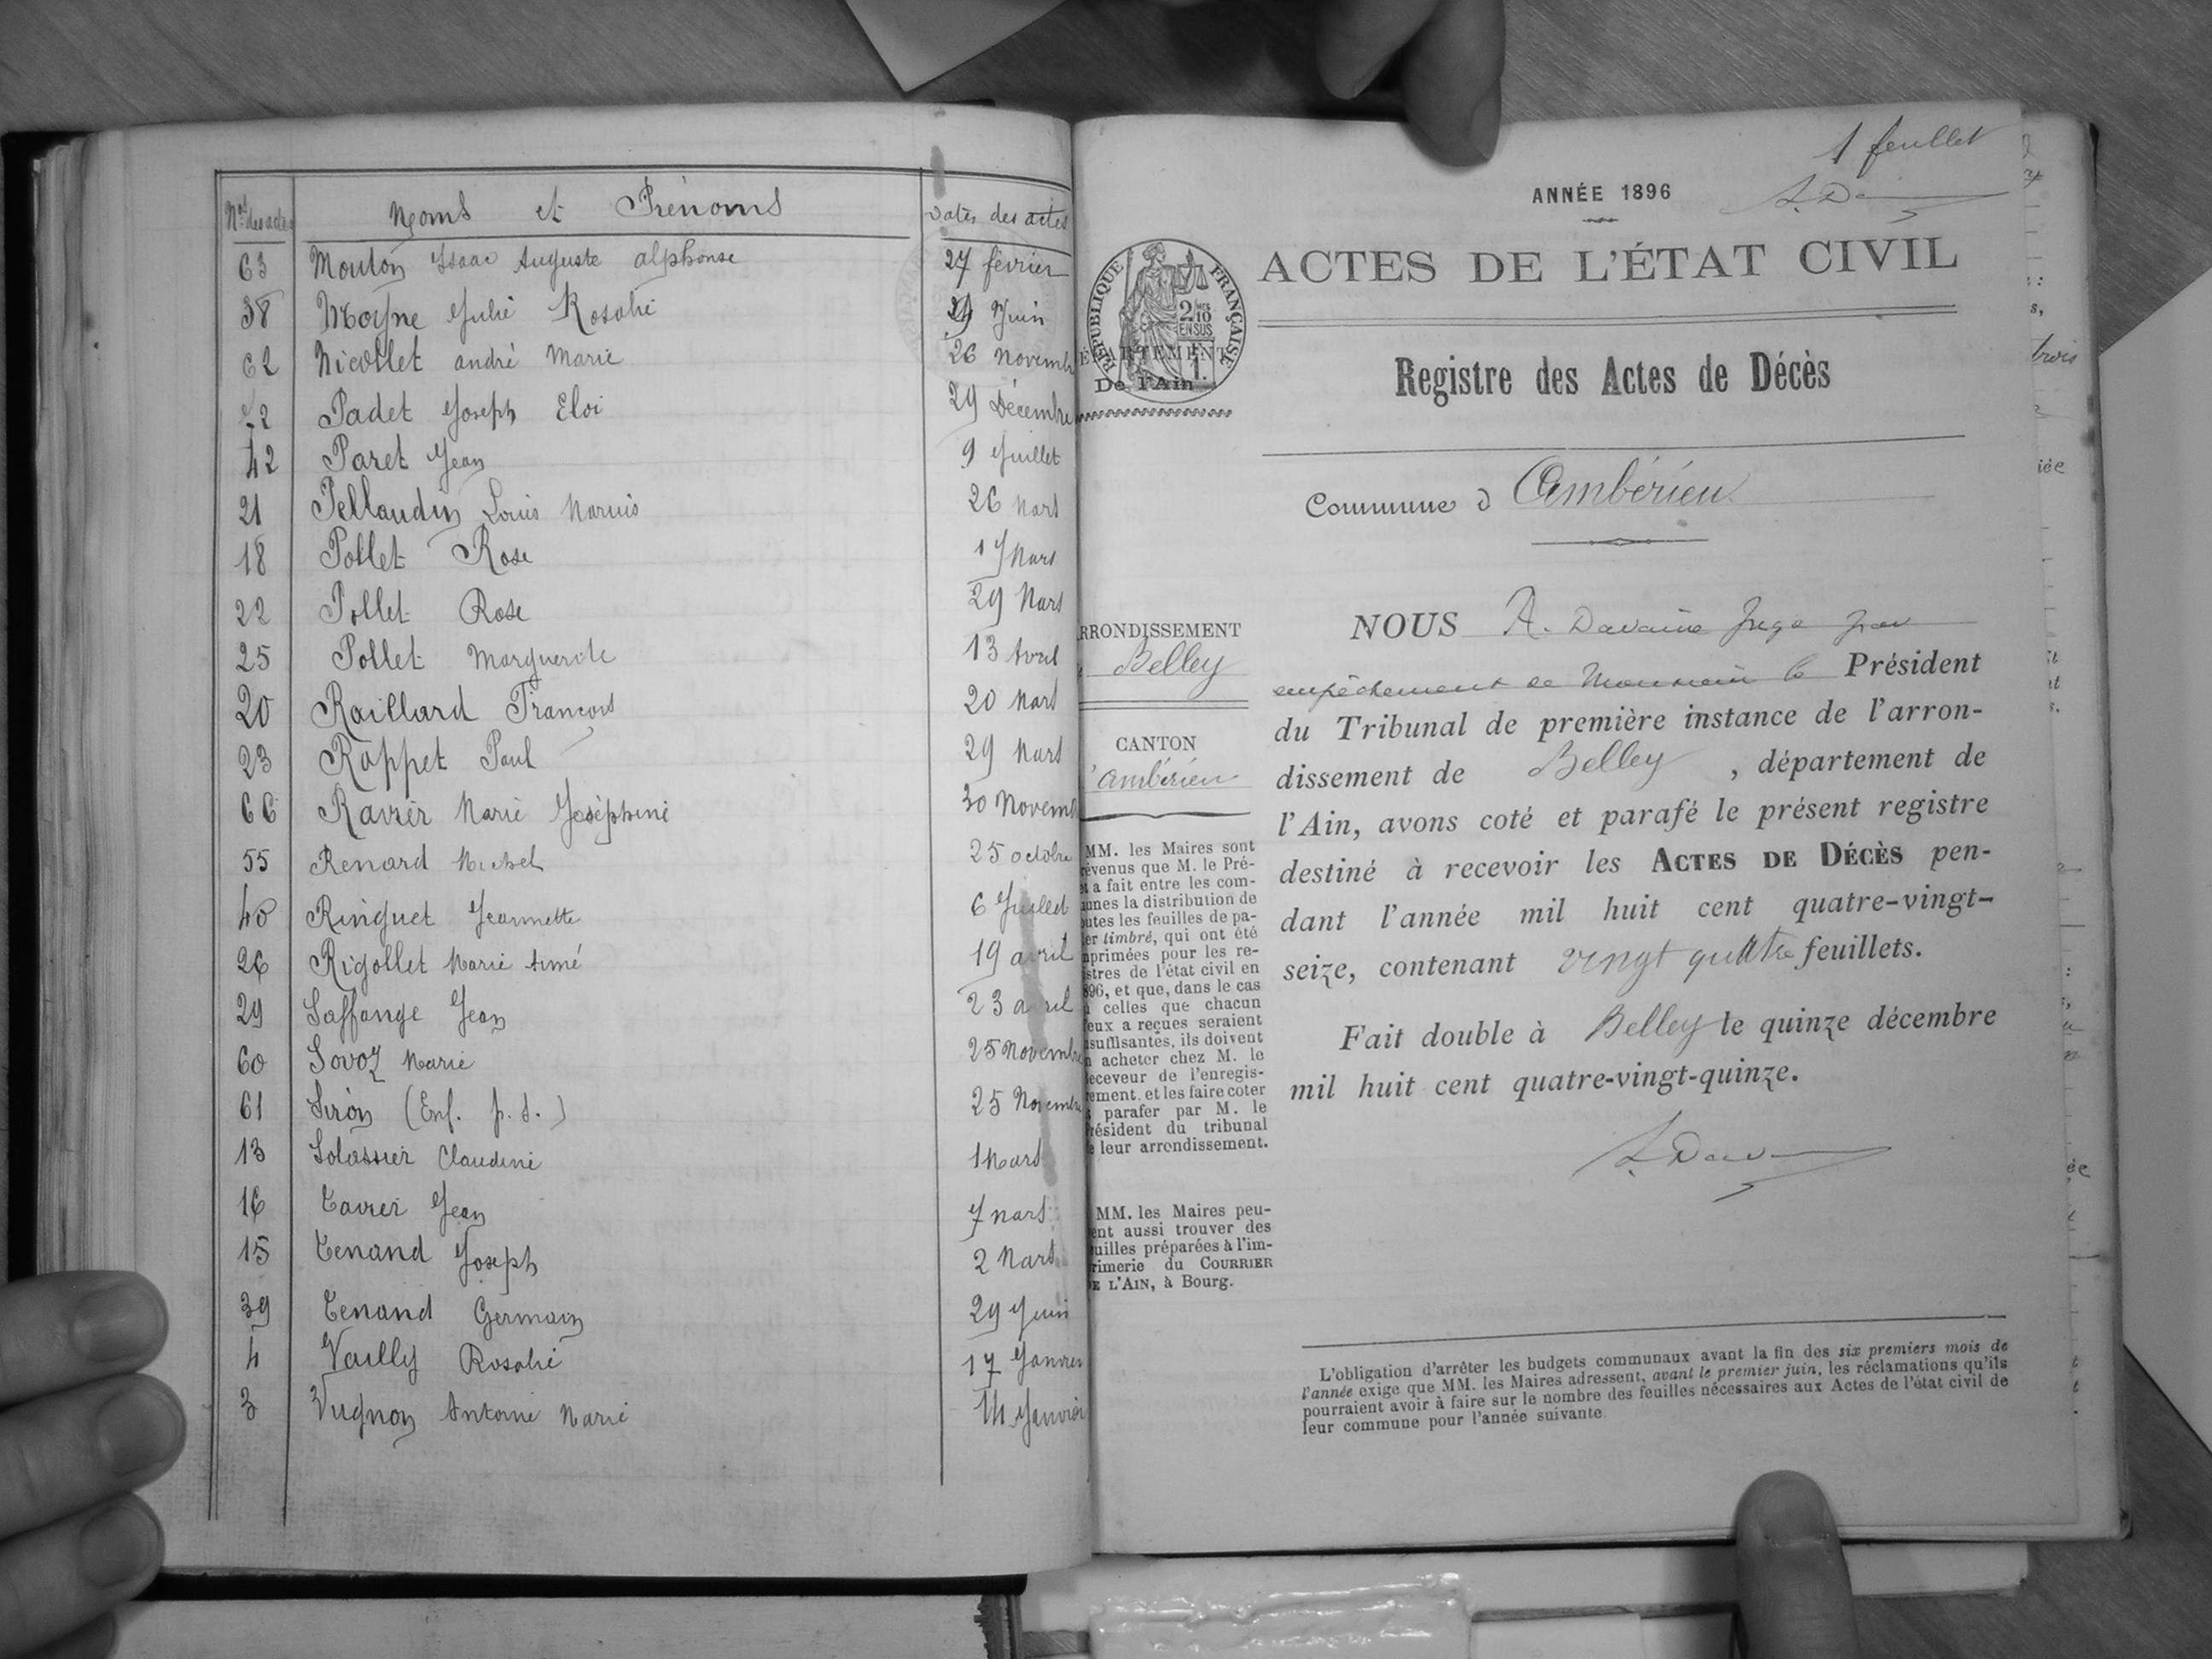 Nos des actes Noms et Prénoms Dates des actes
63 Mouton Isaac Auguste alphonse 27 février
38 Moyne Julie Rosalie Juin
62 Nicollet andré Marie 26 Novemb
72 Padet Joseph Eloi 29 Décembre
42 Paret Jean 9 Juillet
21 Pellaudin Louis Marius 26 Mars
18 Pollet Rose 17 Mars
22 Pollet Rose 29 Mars
25 Pollet Marguerite 13 Avril
20 Raillard François 20 Mars
23 Rappet Paul 29 Mars
66 Ravier Marie Joséphine 30 Novemb
55 Renard Michel 25 octobre
40 Ringuet Jeannette 6 Juillet
26 Rigollet Marie Aimé 19 avril
29 Saffange Jean 23 avril
60 Savoz Marie 25 Novembre
61 Siron (Enf. p. s.) 25 Novembre
13 Solassier Claudine 1 Mars
16 Tavier Jean 7 Mars
15 Tenand Joseph 2 Mars
39 Tenand Germain 29 Juin
4 Vailly Rosalie 17 Janvier
3 Vugnon Antoine Marie 14 Janvier
1 feuillet
ANNÉE 1896
RÉPUBLIQUE FRANÇAISE
2/10 EN SUS
ACTES DE L'ÉTAT CIVIL
ÉPARTEMENT
De l'Ain
Registre des Actes de Décès
Commune d Ambérieu
RRONDISSEMENT
Belley
CANTON
d'Ambérieu
MM. les Maires sont
évenus que M. le Pré-
et a fait entre les com-
unes la distribution de
outes les feuilles de pa-
er timbré, qui ont été
primées pour les re-
stres de l'état civil en
896, et que, dans le cas
celles que chacun
eux a reçues seraient
suffisantes, ils doivent
n acheter chez M. le
eceveur de l'enregis-
ement, et les faire coter
parafer par M. le
résident du tribunal
e leur arrondissement.
MM. les Maires peu-
ent aussi trouver des
uilles préparées à l'im-
rimerie du COURRIER
E L'AIN, à Bourg.
NOUS A. Davaine Juge pour
empêchement de Monsieur le Président
du Tribunal de première instance de l'arron-
dissement de Belley, département de
l'Ain, avons coté et parafé le présent registre
destiné à recevoir les ACTES DE DÉCÈS pen-
dant l'année mil huit cent quatre-vingt-
seize, contenant vingt quatre feuillets.
Fait double à Belley le quinze décembre
mil huit cent quatre-vingt-quinze.
L'obligation d'arrêter les budgets communaux avant la fin des six premiers mois de
l'année exige que MM. les Maires adressent, avant le premier juin, les réclamations qu'ils
pourraient avoir à faire sur le nombre des feuilles nécessaires aux Actes de l'état civil de
leur commune pour l'année suivante.